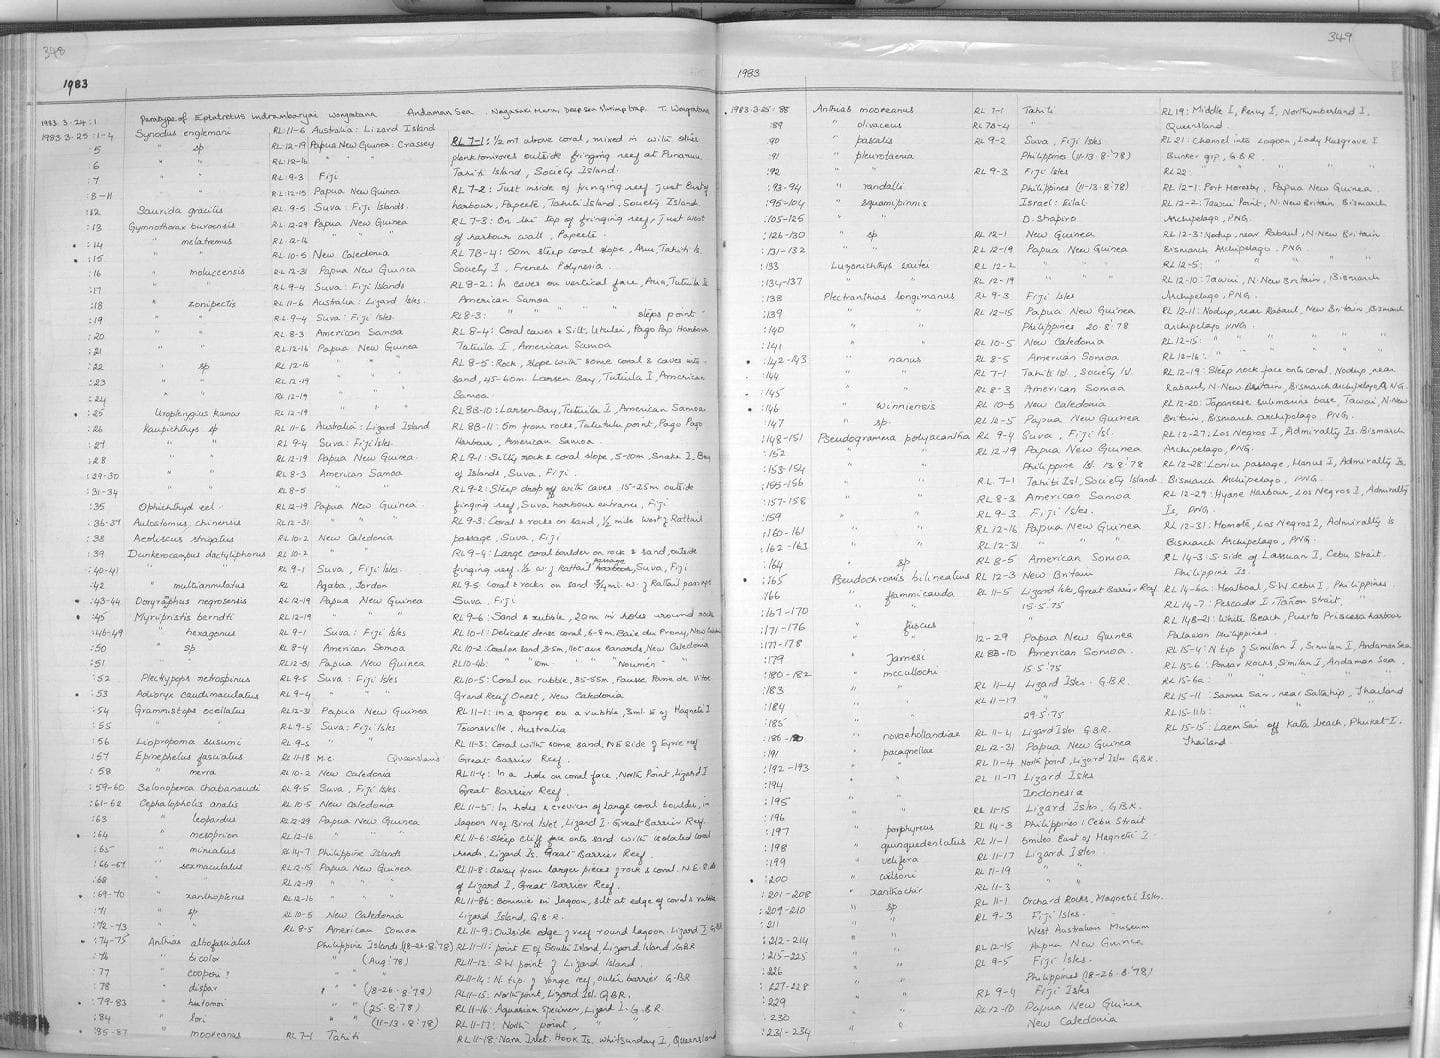 348
1983
1983.3.24:1 Paratype of Eptatretus indrambaryai wongratana Andaman Sea. Nagasaki Maru, Deep sea shrimp trap. T. Wongratana
1983.3.25:1-4 Synodus englemani RL:11-6 Australia: Lizard Island
:5 " sp RL:12-19 Papua New Guinea: Crassey RL 7-1: 1/2 mt above coral, mixed in with other
:6 " " RL:12-16 " " " planktonivores outside fringing reef at Punaruu,
:7 " " RL:9-3 Fiji Tahiti Island, Society Island.
:8-11 " " RL:12-15 Papua New Guinea RL 7-2: Just inside of fringing reef just
:12 Saurida gracilis RL:9-5 Suva: Fiji Islands. harbour, Papeete, Tahiti Island, Society Island
:13 Gymnothorax buroensis RL:12-29 Papua New Guinea RL 7-3: On the top of fringing reef, just west
:14 " melatremus RL:12-16 " " " of harbour wall, Papeete.
:15 " " RL 10-5 New Caledonia RL 7B-4: 50m steep coral slope, Aru, Tahiti Is.
:16 " moluccensis RL 12-31 Papua New Guinea Society I, French Polynesia.
:17 " " RL 9-4 Suva: Fiji Islands RL 8-2: In caves on vertical face, Aua, Tutuila Is
:18 " zonipectis RL 11-6 Australia: Lizard Isles. American Samoa
:19 " " RL 9-4 Suva: Fiji Isles. RL 8-3: " " " steps point "
:20 " " RL 8-3 American Samoa RL 8-4: Coral caves & Silt, Utulei, Pago Pap Harbour
:21 " " RL 12-16 Papua New Guinea Tutuila I, American Samoa
:22 " sp RL 12-16 " " " RL 8-5: Rock, slope with some coral & caves into
:23 " " RL 12-19 " " " sand, 45-60m. Larsen Bay, Tutuila I, American
:24 " " RL 12-19 " " " Samoa.
:25 Uropterygius kamar RL 12-19 " " " RL 8B-10: Larsen Bay, Tutuila I, American Samoa
:26 Kaupichthys sp RL 11-6 Australia: Lizard Island RL 8B-11: 5m from rocks, Talutulu point, Pago Pago
:27 " " RL 9-4 Suva: Fiji Isles. Harbour, American Samoa.
:28 " " RL 12-19 Papua New Guinea. RL 9-1: Silty rock & coral slope, 5-10m, Snake I, Bay
:29-30 " " RL 8-3 American Samoa of Islands, Suva, Fiji.
:31-34 " " RL 8-5 " " RL 9-2: Steep drop off with caves, 15-25m outside
:35 Ophichthyd eel. RL 12-19 Papua New Guinea. fringing reef, Suva harbour entrance, Fiji
:36-37 Aulostomus chinensis RL 12-31 " " " RL 9-3: Coral & rocks on sand, 1/2 mile West of Rattail
:38 Aeoliscus strigatus RL 10-2 New Caledonia passage, Suva, Fiji
:39 Dunkerocampus dactyliphorus RL 10-2 " " RL 9-4: Large coral boulder on rock & sand, outside
:40-41 " " RL 9-1 Suva, Fiji Isles. fringing reef, 1/2 w. of Rattail passage, Suva, Fiji
:42 " multiannulatus RL Aqaba, Jordan RL 9-5 coral & rocks on sand 3/4 mi. w. of Rattail passage
:43-44 Doryrhamphus negrosensis RL 12-19 Papua New Guinea Suva, Fiji
:45 Myripristis berndti RL 12-19 " " " RL 9-6: Sand & rubble, 20m in holes around rock
:46-49 " hexagonus RL 9-1 Suva: Fiji Isles RL 10-1: Delicate dense coral, 6-8m, Baie du Prony, New Caledonia
:50 " sp RL 8-4 American Samoa RL 10-2: Coral on sand 3-5m, Ilot aux Canards, New Caledonia
:51 " " RL 12-31 Papua New Guinea RL 10-4b: " " 10m " Nouméa " "
:52 Plectypops retrospinus RL 9-5 Suva: Fiji Isles RL 10-5: Coral on rubble, 35-55m, Fausse Passe de Vitoe
:53 Adioryx caudimaculatus RL 9-4 " " Grand Reef Ouest, New Caledonia
:54 Grammistops ocellatus RL 12-31 Papua New Guinea RL 11-1: In a sponge on a rubble, 3ml. E of Magnetic I
:55 " " RL 9-5 Suva: Fiji Isles Townsville, Australia
:56 Liopropoma susumi RL 9-5 " " RL 11-3: Coral with some sand, NE side of Eyrie reef
:57 Epinephelus fasciatus RL 11-18 M.C. Queensland Great Barrier Reef.
:58 " merra RL 10-2 New Caledonia RL 11-4: In a hole on coral face, North Point, Lizard I
:59-60 Belonoperca chabanaudi RL 9-5 Suva, Fiji. Great Barrier Reef.
:61-62 Cephalopholis analis RL 10-5 New Caledonia RL 11-5: In holes & crevices of large coral boulder, in
:63 " leopardus RL 12-29 Papua New Guinea lagoon N of Bird Islet, Lizard I. Great Barrier Reef.
:64 " mesoprion RL 12-16 " " " RL 11-6: Steep cliff face onto sand with isolated coral
:65 " miniatus RL 14-7 Philippine Islands heads, Lizard Is. Great Barrier Reef.
:66-67 " sexmaculatus RL 12-15 Papua New Guinea RL 11-8: Away from larger pieces of rock & coral. N.E. side
:68 " " RL 12-19 " " " of Lizard I, Great Barrier Reef.
:69-70 " xanthopterus RL 12-16 " " " RL 11-8b: Bommie in lagoon, silt at edge of coral & rubble
:71 " sp RL 10-5 New Caledonia Lizard Island, G.B.R.
:72-73 " " RL 8-5 American Samoa RL 11-9: Outside edge of reef round lagoon. Lizard I GBR
:74-75 Anthias albofasciatus Philippine Islands (18-26.8.'78) RL 11-11: point E of South Island, Lizard Island, GBR
:76 " bicolor " " (Aug '78) RL 11-12: S.W. point of Lizard Island.
:77 " cooperi? " " " RL 11-14: N. tip of Yonge reef, outer barrier G.B.R
:78 " dispar " " (18-26.8.'79) RL 11-15: North point, Lizard Isl. G.B.R.
:79-83 " hutomoi " " (25.8.'78) RL 11-16: Aquarium specimens, Lizard I. G.B.R.
:84 " lori " " (11-13.8.'78) RL 11-17: North point, " "
:85-87 " mooreanus RL 7-1 Tahiti RL 11-18: Nara Inlet. Hook Is. Whitsunday I, Queensland
349
1983
1983.3.25:88 Anthias mooreanus RL 7-1 Tahiti RL 19: Middle I, Percy I, Northumberland I
:89 " olivaceus RL 7B-4 " Queensland.
:90 " pascalis RL 9-2 Suva, Fiji Isles RL 21: Channel into Lagoon, Lady Musgrave I
:91 " pleurotaenia Philippines (11-13.8.'78) Bunker grp, G.B.R.
:92 " " RL 9-3 Fiji Isles RL 22: " " "
:93-94 " randalli Philippines (11-13.8.'78) RL 12-1: Port Moresby, Papua New Guinea
:95-104 " squamipinnis Israel: Eilat. RL 12-2: Tawui Point, N. New Britain Bismarck
:105-125 " " D. Shapiro Archipelago, PNG.
:126-130 " sp RL 12-1 New Guinea RL 12-3: Nodup, near Rabaul, N. New Britain
:131-132 " " RL 12-19 Papua New Guinea Bismarck Archipelago, PNG
:133 Luzonichthys waitei RL 12-2 " " " RL 12-5: " " "
:134-137 " " RL 12-19 " " " RL 12-10: Tawui, N. New Britain, Bismarck
:138 Plectranthias longimanus RL 9-3 Fiji Isles Archipelago, PNG.
:139 " " RL 12-15 Papua New Guinea RL 12-11: Nodup, near Rabaul, New Britain, Bismarck
:140 " " Philippines 20.8.'78 archipelago PNG.
:141 " " RL 10-5 New Caledonia RL 12-15: " " "
:142-143 " nanus RL 8-5 American Samoa RL 12-16: " " "
:144 " " RL 7-1 Tahiti Isl., Society Isl. RL 12-19: Steep rock face onto coral, Nodup, near
:145 " " RL 8-3 American Samoa Rabaul, N. New Britain, Bismarck Archipelago, P.N.G.
:146 " winniensis RL 10-5 New Caledonia RL 12-20: Japanese submarine base, Tawui, N. New
:147 " sp. RL 12-5 Papua New Guinea Britain, Bismarck archipelago, PNG.
:148-151 Pseudogramma polyacantha RL 9-4 Suva, Fiji Isl. RL 12-27: Los Negros I, Admiralty Is. Bismarck
:152 " " RL 12-19 Papua New Guinea Archipelago, PNG.
:153-154 " " Philippine Isl. 13.8.'78 RL 12-28: Loniu passage, Manus I, Admiralty Is,
:155-156 " " RL 7-1 Tahiti Isl, Society Island. Bismarck Archipelago, PNG.
:157-158 " " RL 8-3 American Samoa RL 12-29: Hyane Harbour, Los Negros I, Admiralty
:159 " " RL 9-3 Fiji Isles. Is, PNG.
:160-161 " " RL 12-16 Papua New Guinea RL 12-31: Momote, Los Negros I, Admiralty Is
:162-163 " " RL 12-31 " " " Bismarck Archipelago, PNG.
:164 " sp RL 8-5 American Samoa RL 14-3: S. side of Lassuan I, Cebu Strait.
:165 Pseudochromis bilineatus RL 12-3 New Britain Philippine Is.
:166 " flammicauda RL 11-5 Lizard Isles, Great Barrier Reef RL 14-6a: Moalboal, S.W. Cebu I, Philippines
:167-170 " " 15.5.'75 RL 14-7: Pescador I. Tañon Strait, "
:171-176 " fuscus " RL 14B-21: White Beach, Puerto Princesa harbour
:177-178 " " 12-29 Papua New Guinea Palawan Philippines.
:179 " Jamesi RL 8B-10 American Samoa. RL 15-4: N tip of Similan I, Similan I, Andaman Sea
:180-182 " mccullochi 15.5.'75 RL 15-6: Ponsar Rocks, Similan I, Andaman Sea.
:183 " " RL 11-4 Lizard Isles. G.B.R. RL 15-6a: " " "
:184 " " RL 11-17 " RL 15-11: Samae San, near Sattahip, Thailand
:185 " " 29.5.'75 RL 15-11b: " " "
:186-190 " novaehollandiae RL 11-4 Lizard Isles G.B.R. RL 15-15: Laem Sai off Kata beach, Phuket I.
:191 " paranellae RL 12-31 Papua New Guinea Thailand.
:192-193 " " RL 11-4 North point, Lizard Isls G.B.R.
:194 " " RL 11-17 Lizard Isles
:195 " " Indonesia
:196 " " RL 11-15 Lizard Isles, G.B.R.
:197 " porphyreus RL 14-3 Philippines: Cebu Strait
:198 " quinquedentatus RL 11-1 3 miles East of Magnetic I.
:199 " velifera RL 11-17 Lizard Isles.
:200 " wilsoni RL 11-19 "
:201-208 " xanthochir RL 11-3 "
:209-210 " sp RL 11-1 Orchard Rocks, Magnetic Isle.
:211 " " RL 9-3 Fiji Isles.
:212-214 " " West Australian Museum
:215-225 " " RL 12-15 Papua New Guinea
:226 " " RL 9-5 Fiji Isles.
:227-228 " " Philippines (18-26.8.'78)
:229 " " RL 9-4 Fiji Isles
:230 " " RL 12-10 Papua New Guinea
:231-234 " " New Caledonia